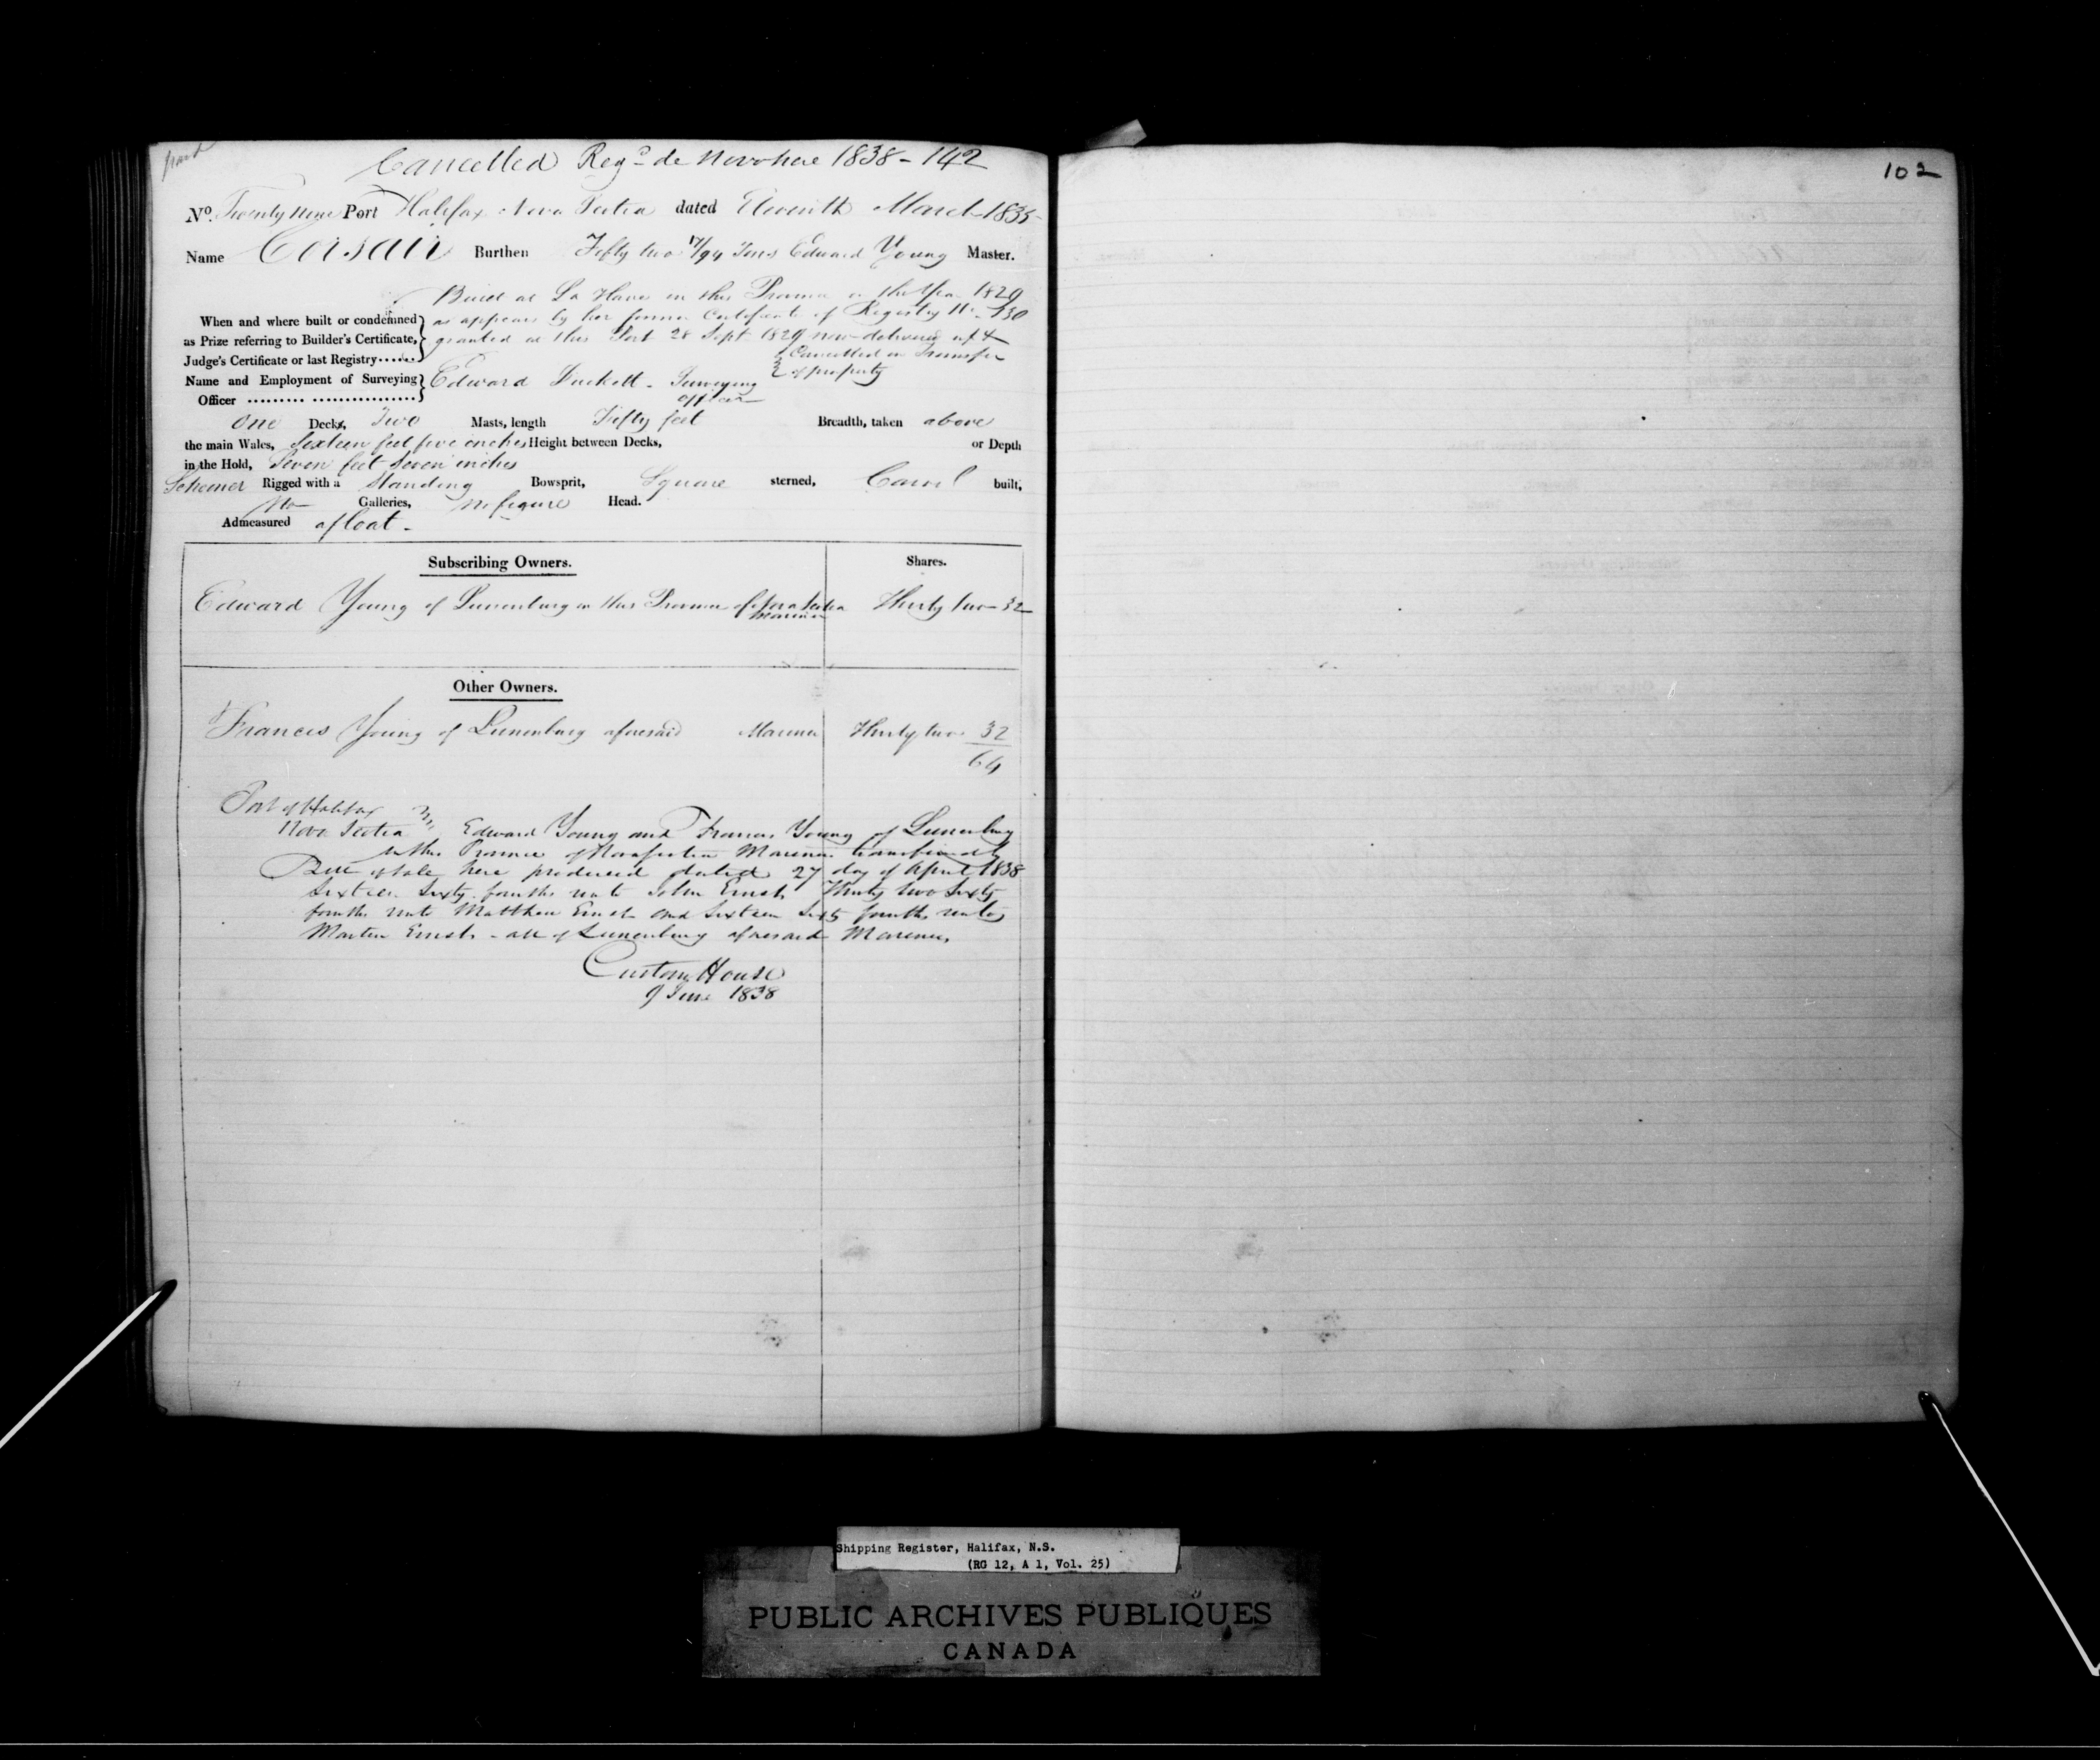 Cancelled Regd de Novo here 1838 - 142
No. Twenty nine Port Halifax Nova Scotia dated Eleventh March 1835
Name Corsair Burthen Fifty two 17/94 Tons Edward Young Master.
Built at La Have in this Province in the Year 1829
When and where built or condemned as appears by her former Certificate of Registry No. 130
as Prize referring to Builder's Certificate, granted at this Port 28 Sept 1829 now delivered up &
Judge's Certificate or last Registry...... Cancelled on Transfer
of property
Name and Employment of Surveying Edward Duckett - Surveying
Officer ......... ................ officer
One Deck, Two Masts, length Fifty feet Breadth, taken above
the main Wales, Sixteen feet five inches Height between Decks, or Depth
in the Hold, Seven feet seven inches
Schooner Rigged with a Standing Bowsprit, Square sterned, Carvel built,
No Galleries, no figure Head.
Admeasured afloat -
Subscribing Owners. Shares.
Edward Young of Lunenburg in this Province of Nova Scotia Thirty two 32
Mariner
Other Owners.
Francis Young of Lunenburg aforesaid Mariner Thirty two 32
64
Port of Halifax
Nova Scotia Edward Young and Francis Young of Lunenburg
in this Province of Nova Scotia Mariners transferred by
Bill of Sale here produced dated 27 day of April 1838
Sixteen Sixty fourths unto John Ernst Thirty two Sixty
fourths unto Matthew Ernst and Sixteen Sixty fourths unto
Martin Ernst - all of Lunenburg aforesaid Mariners
Custom House
9 June 1838
102
Shipping Register, Halifax, N.S.
(RG 12, A 1, Vol. 25)
PUBLIC ARCHIVES PUBLIQUES
CANADA